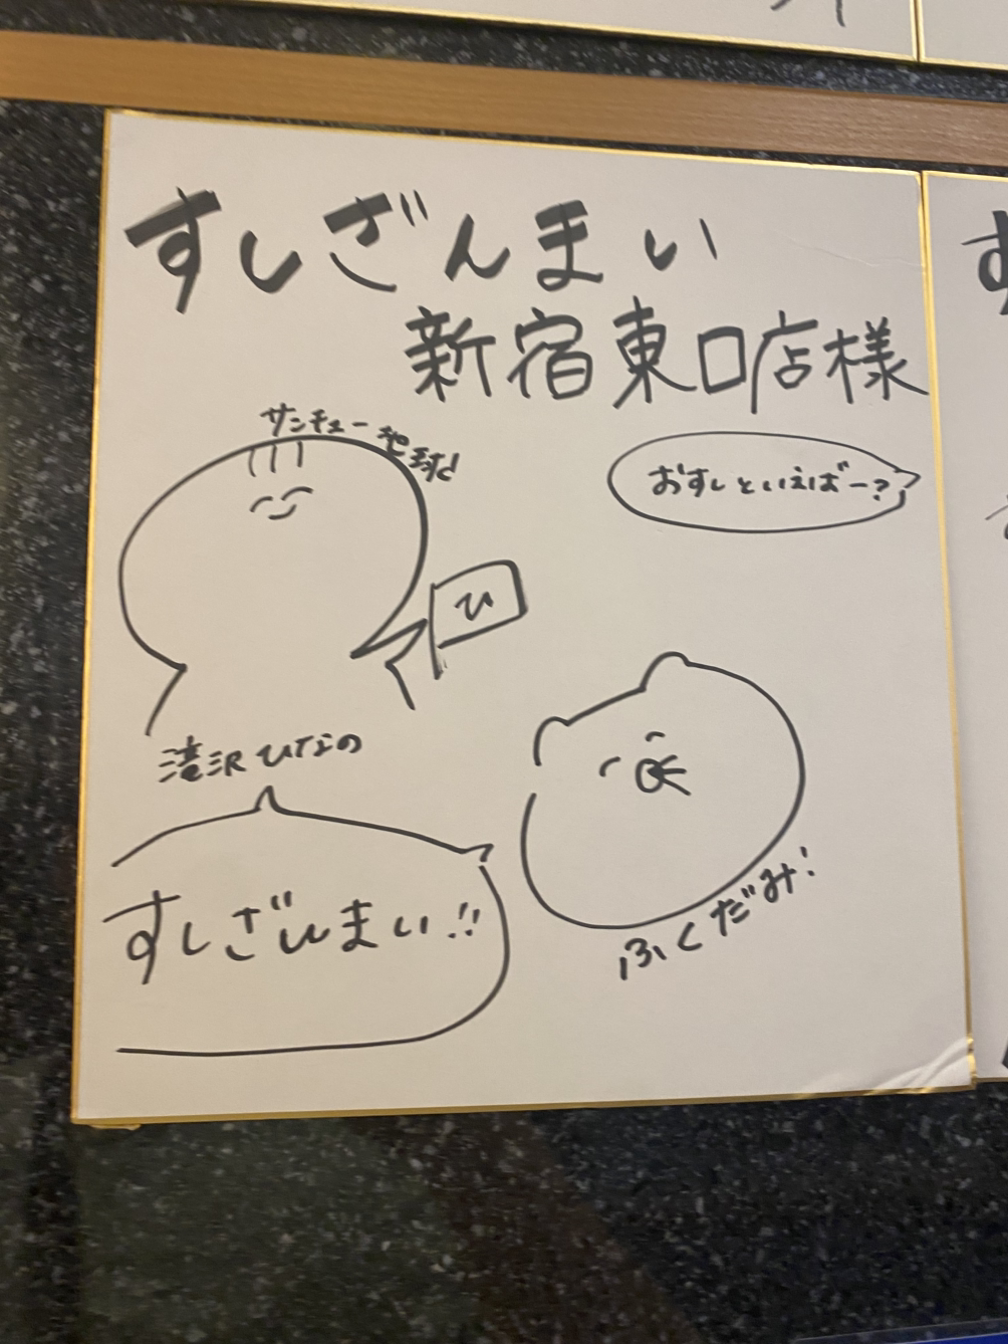 すしざんまい
新宿東口店様
サンチュー地球!
おすしといえばー?
ひ
滝沢ひなの
すしざんまい!!
ふくだみ!
す